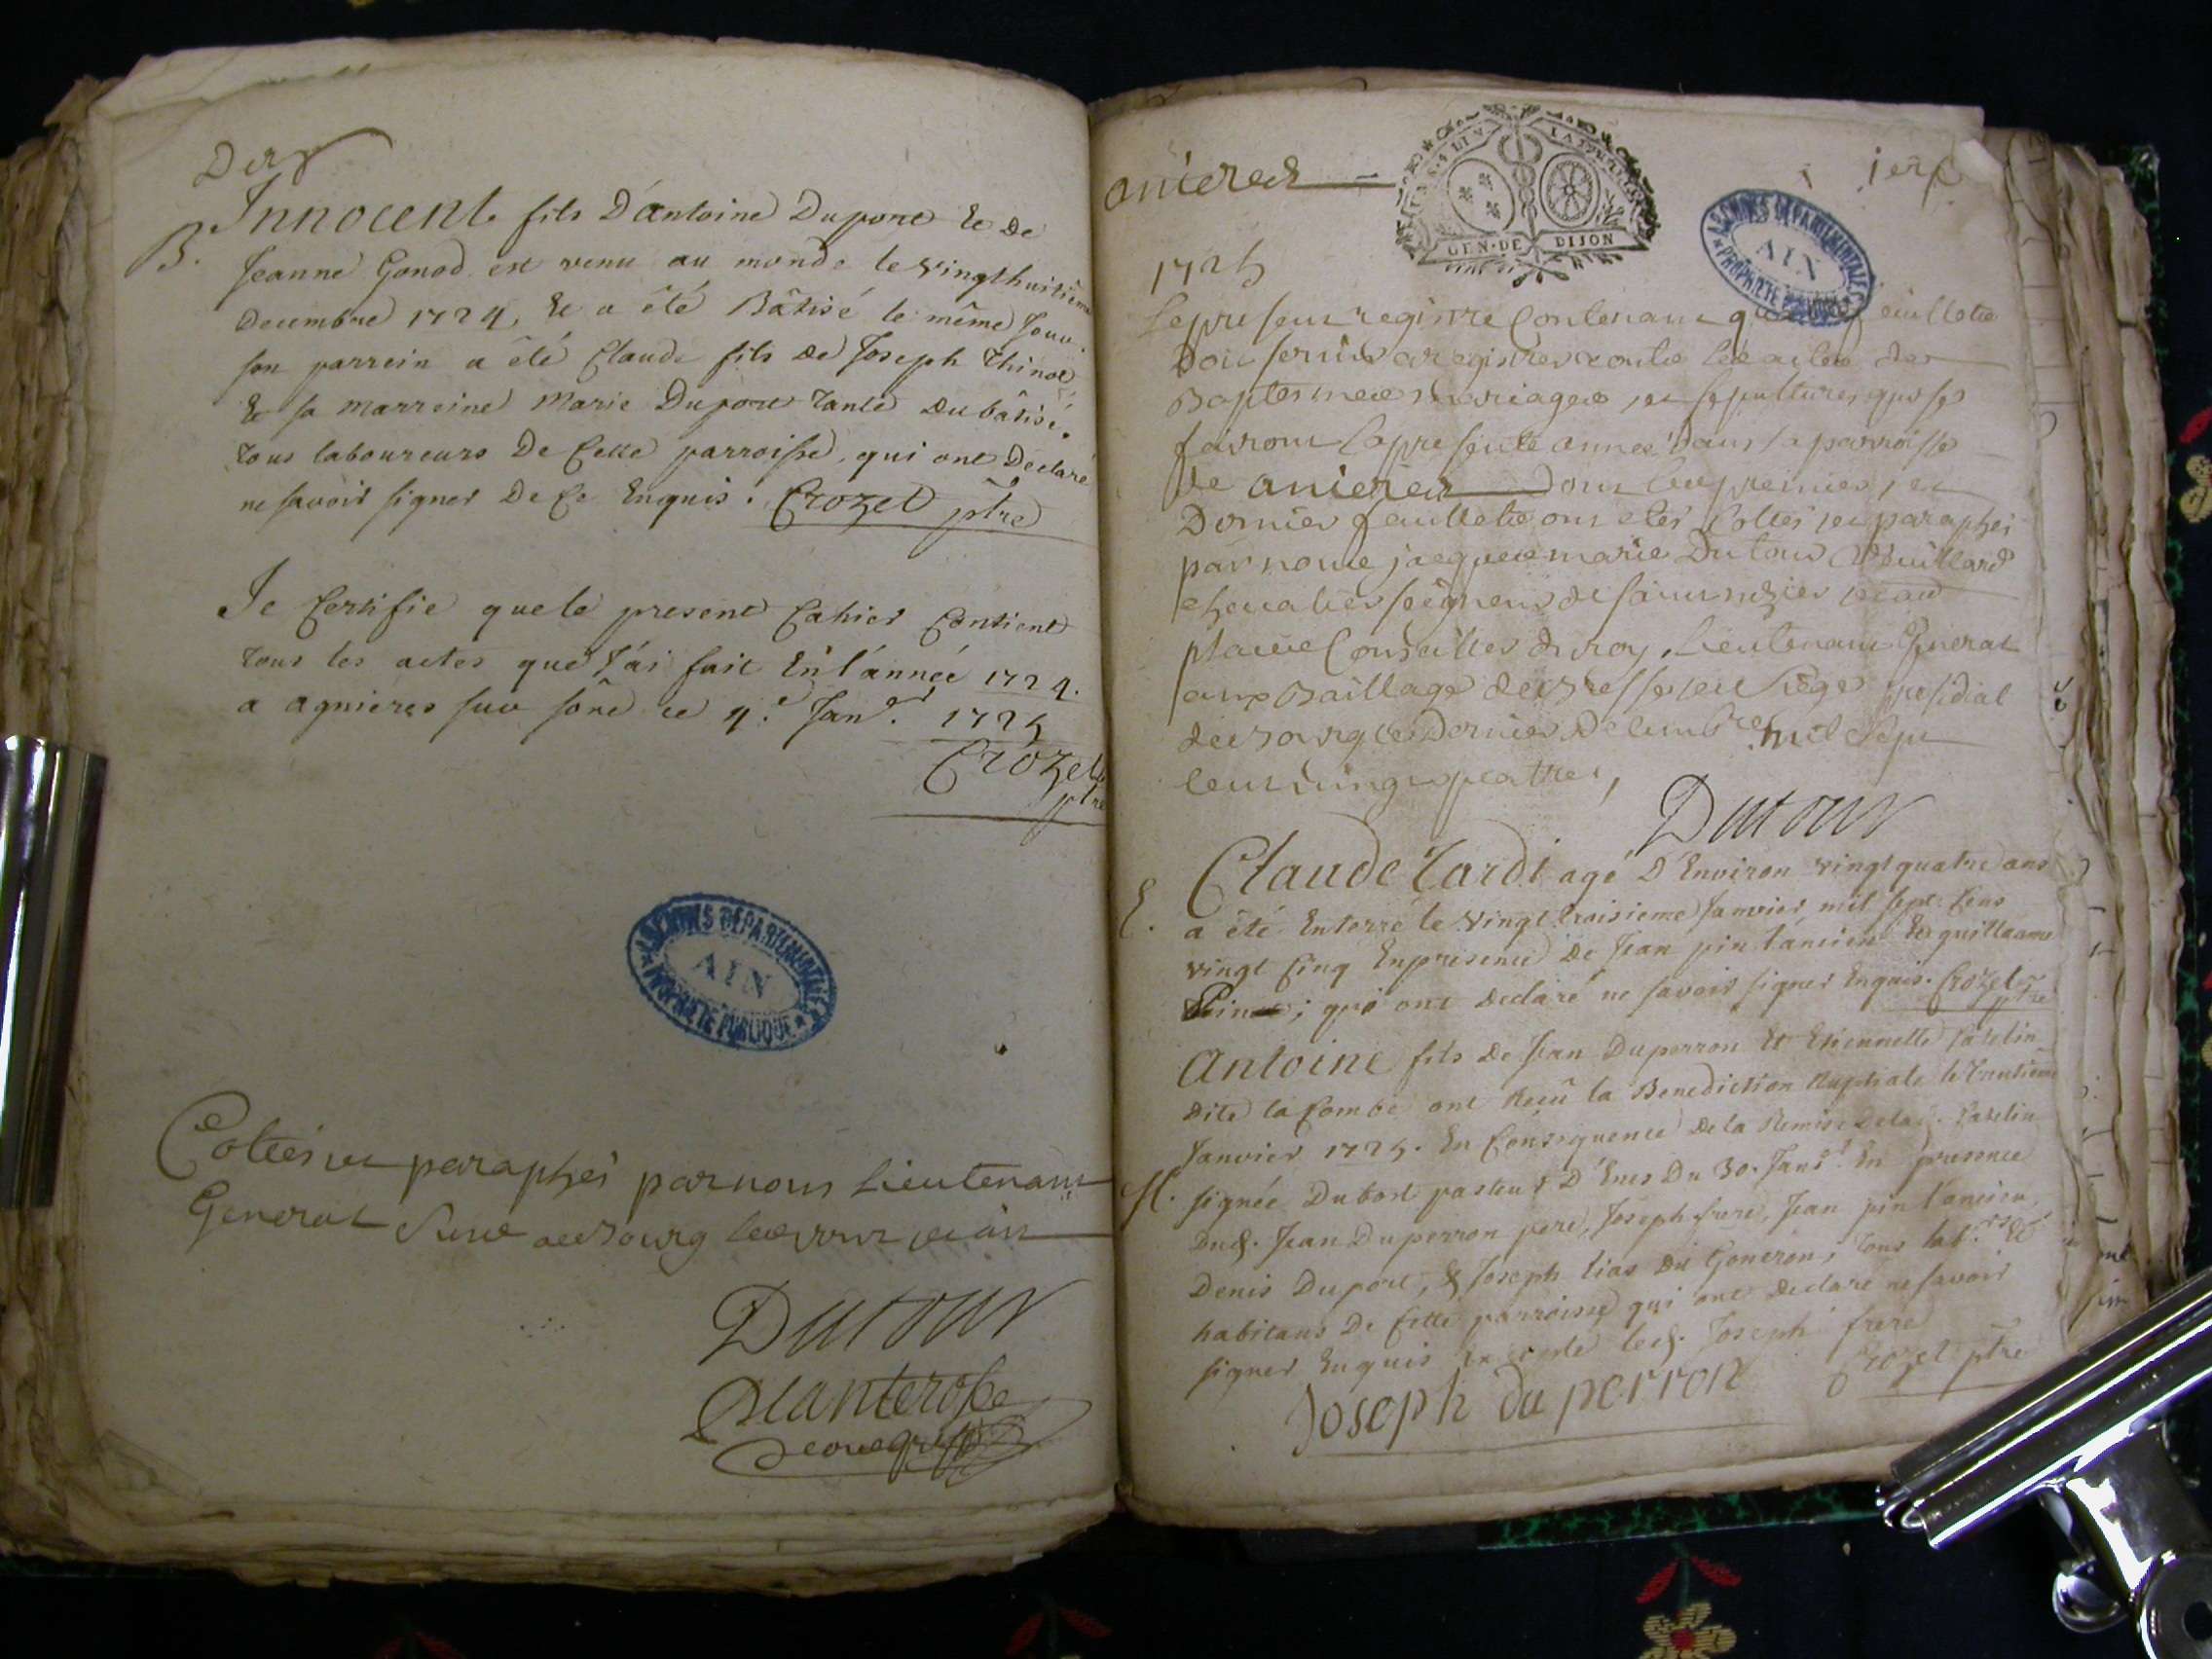 Der
Innocent fils D'antoine Dupont et de
B. Jeanne Gonod est venu au monde le vingthuitième
Decembre 1724, et a été Bâtisé le même Jour.
son parrein a été Claude fils de Joseph Thinod
et sa marreine Marie Dupont tante du bâtisé.
tous laboureurs De Cette parroisse, qui ont Declaré
ne savoir signer De Ce Enquis. Crozet ptre
Je Certifie que le present Cahier Contient
tous les actes que J'ai fait En l'année 1724.
a agnieres suv sône ce 4.e Janer. 1725
Crozet
ptre
ARCHIVES DÉPARTEMENTALES
AIN
PROPRIÉTÉ PUBLIQUE
Cottés et paraphés par nous Lieutenant
General a Bourg les jour et an
Dutour
anieres
GEN·DE DIJON
ier f
ARCHIVES DÉPARTEMENTALES
AIN
PROPRIÉTÉ PUBLIQUE
1725
Le present registre Contenant feuillets
Doit servir a registrer toutes les actes des
Baptesmes mariages, et sepultures qui se
fairont la presente année dans la parroisse
de anieres Dont les premier, et
Dernier feuillets ont etés Cottés et paraphés
par nous jacques marie Dutour Vuillard
chevalier seigneur de et autres
places Conseiller du roy, Lieutenant General
aux Baillage de Bresse et siege presidial
de Bourg le Dernier Decembre mil sept
cent vingt quattre,
Dutour
Claude Tardi agé D'Environ vingt quatre ans
E. a été Enterré le vingt troisieme Janvier mil sept Cens
vingt Cinq En presence De Jean pin l'ancien et guillaume
; qui ont declaré ne savoir signer Enquis. Crozet ptre
Antoine fils De Jean Duperron et Etiennette Patelin
dite la Combe ont Reçû la Benediction Nuptiale le trentieme
Janvier 1725. En Consequence De la Remise de lad. Patelin
M. signée Dubost pasteur D'Enes Du 30. Janer. En presence
Dud. Jean Duperron pere, Joseph frere, Jean pin l'ancien,
Denis Duport, & Joseph lias dit Goneron, tous labrs. &
habitans De Cette parroisse qui ont declaré ne savoir
signer Enquis Excepté led. Joseph frere
Joseph du perron Crozet ptre